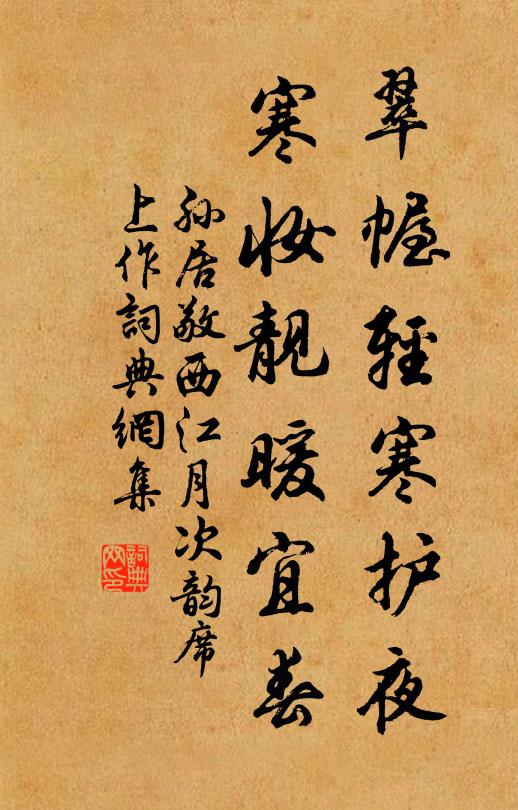 翠幄輕寒护夜
寒妆靚暖宜春
孙居敬西江月次韵席
上作詞典網集
詞典
网印